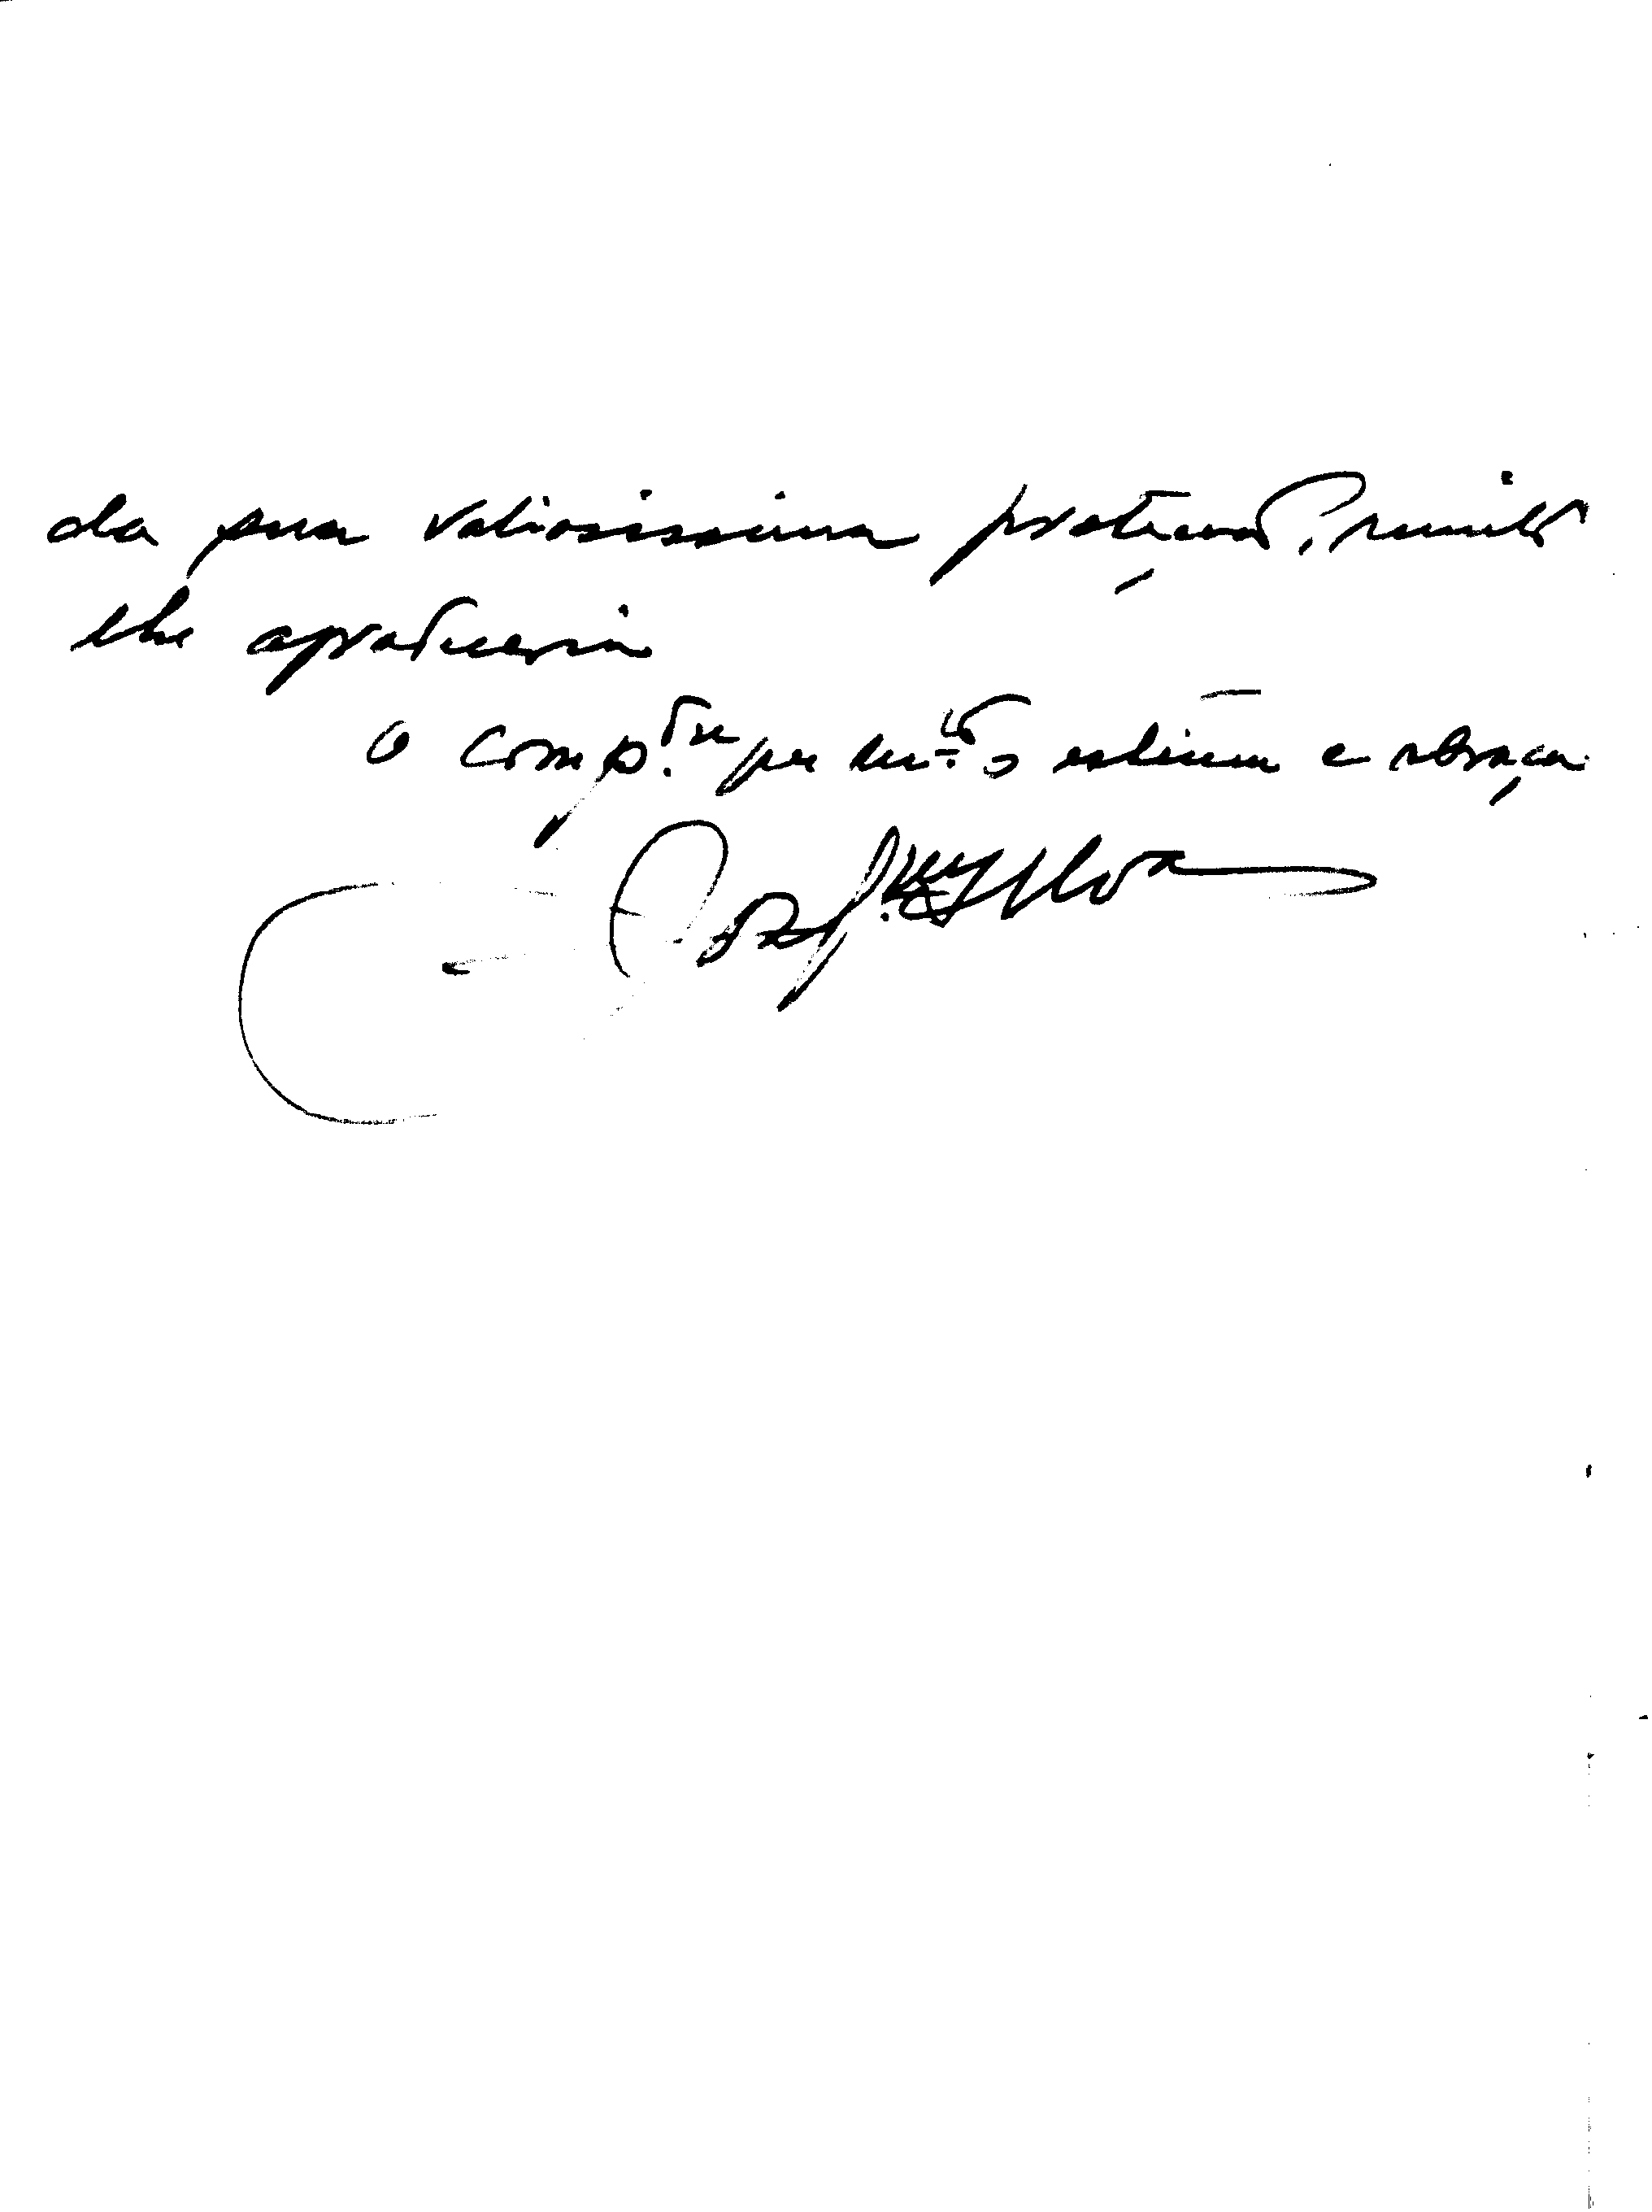 da sua valiosissima proteção, muito
lhe agradeceria
O comp.dre que m.to o estima e abraça